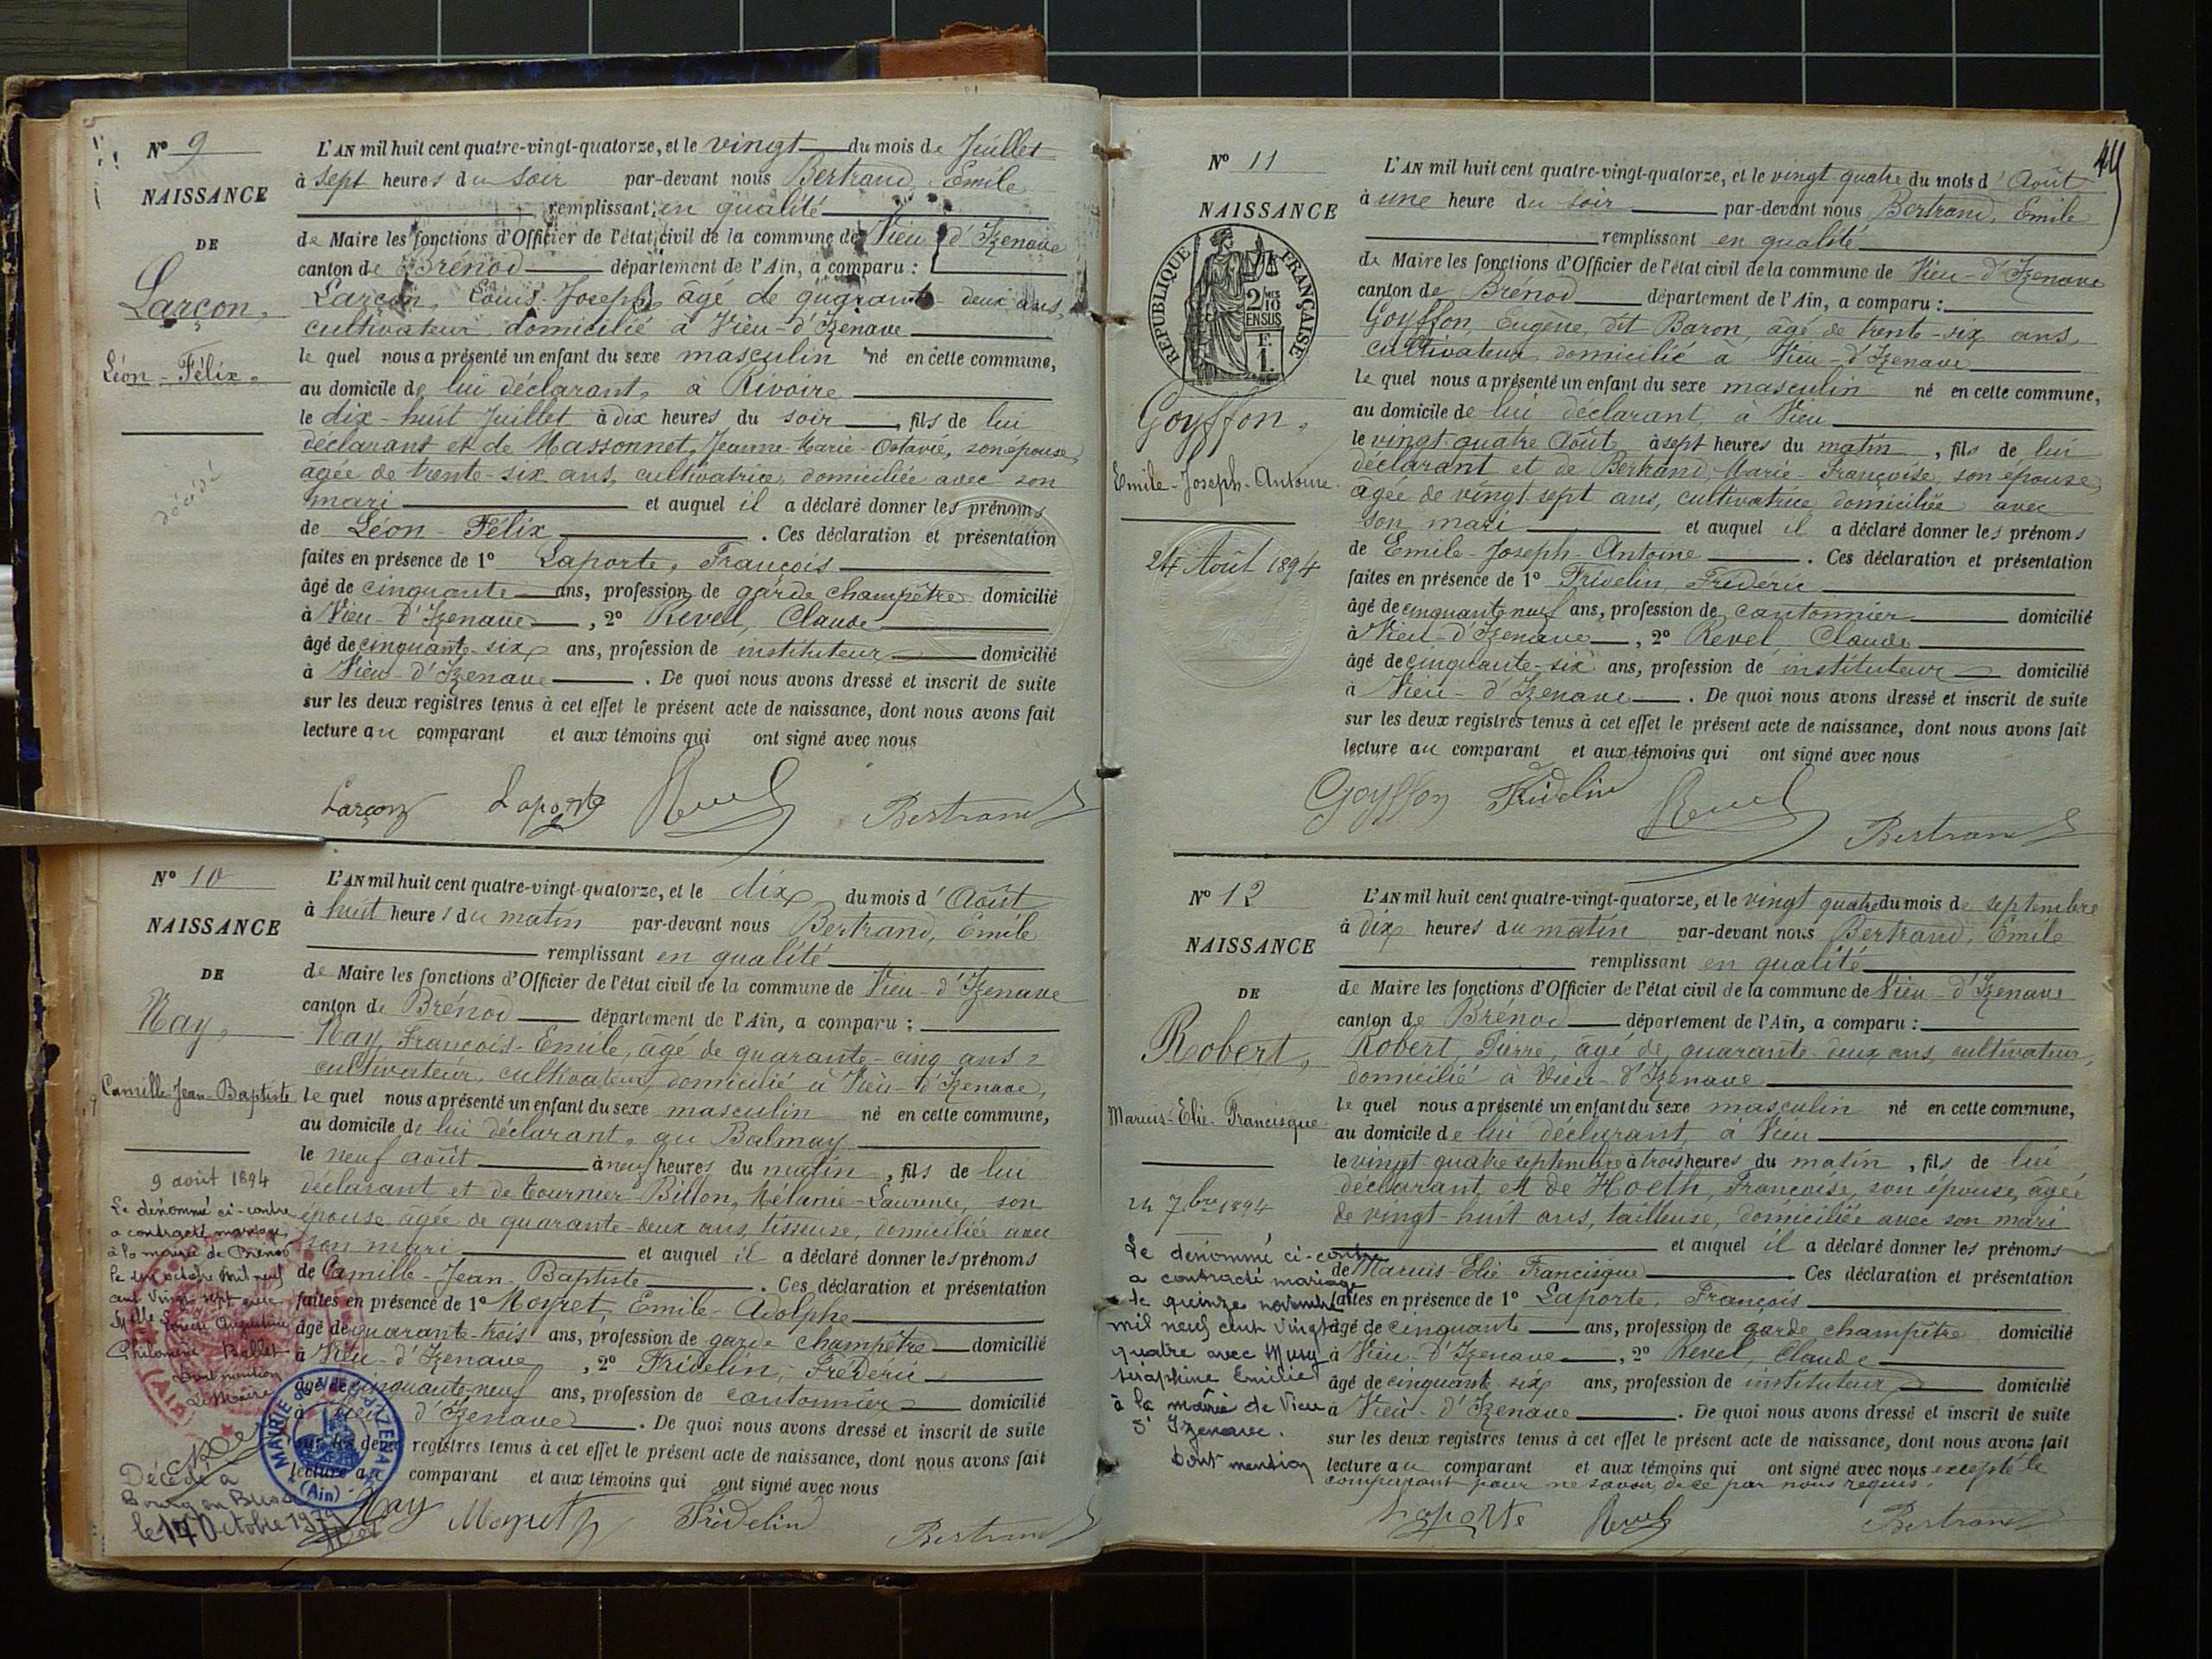 N° 9
NAISSANCE
DE
Larçon,
Léon-Félix.
décédé
L'AN mil huit cent quatre-vingt-quatorze, et le vingt du mois de Juillet
à sept heures du soir par-devant nous Bertrand, Emile
remplissant en qualité
de Maire les fonctions d'Officier de l'état civil de la commune de Vieu-d'Izenave
canton de Brénod département de l'Ain, a comparu :
Larçon, Louis-Joseph, âgé de quarante-deux ans,
cultivateur domicilié à Vieu-d'Izenave
le quel nous a présenté un enfant du sexe masculin né en cette commune,
au domicile de lui déclarant, à Rivoire
le dix-huit Juillet à dix heures du soir, fils de lui
déclarant et de Massonnet, Jeanne-Marie-Octavie, son épouse,
agée de trente-six ans, cultivatrice, domiciliée avec son
mari et auquel il a déclaré donner les prénoms
de Léon-Félix. Ces déclaration et présentation
faites en présence de 1° Laporte, François
âgé de cinquante ans, profession de garde champêtre domicilié
à Vieu-d'Izenave, 2° Revel, Claude
âgé de cinquante-six ans, profession de instituteur domicilié
à Vieu-d'Izenave. De quoi nous avons dressé et inscrit de suite
sur les deux registres tenus à cet effet le présent acte de naissance, dont nous avons fait
lecture au comparant et aux témoins qui ont signé avec nous
Larçon Laporte Revel Bertrand
N° 10
NAISSANCE
DE
Nay,
Camille-Jean-Baptiste
9 août 1894
Le dénommé ci-contre
a contracté mariage
à la mairie de Brénod
le six octobre mil neuf
cent vingt sept avec
Augustine
Philomène Ballet
Dont mention
Le Maire
Décédé à
Bourg en Bresse
le 17 Octobre 1979
MAIRIE DE VIEU D'IZENAVE
(Ain)
L'AN mil huit cent quatre-vingt-quatorze, et le dix du mois d'Août
à huit heures du matin par-devant nous Bertrand, Emile
remplissant en qualité
de Maire les fonctions d'Officier de l'état civil de la commune de Vieu-d'Izenave
canton de Brénod département de l'Ain, a comparu :
Nay, François-Emile, agé de quarante-cinq ans,
cultivateur, cultivateur, domicilié à Vieu-d'Izenave,
le quel nous a présenté un enfant du sexe masculin né en cette commune,
au domicile de lui déclarant, au Balmay
le neuf août à neuf heures du matin, fils de lui
déclarant et de Tournier-Billon, Mélanie-Laurence, son
épouse agée de quarante-deux ans, tisseuse, domiciliée avec
son mari et auquel il a déclaré donner les prénoms
de Camille-Jean-Baptiste. Ces déclaration et présentation
faites en présence de 1° Moyret, Emile-Adolphe
âgé de quarante-trois ans, profession de garde champêtre domicilié
à Vieu-d'Izenave, 2° Fridelin, Frédéric
âgé de cinquante-neuf ans, profession de cantonnier domicilié
à Vieu d'Izenave. De quoi nous avons dressé et inscrit de suite
sur les deux registres tenus à cet effet le présent acte de naissance, dont nous avons fait
lecture au comparant et aux témoins qui ont signé avec nous
Nay Moyret Fridelin Bertrand
44
N° 11
NAISSANCE
RÉPUBLIQUE FRANÇAISE
2/10 EN SUS
1 F.
Goyffon,
Emile-Joseph-Antoine
24 Août 1894
L'AN mil huit cent quatre-vingt-quatorze, et le vingt-quatre du mois d'Août
à une heure du soir par-devant nous Bertrand, Emile
remplissant en qualité
de Maire les fonctions d'Officier de l'état civil de la commune de Vieu-d'Izenave
canton de Brénod département de l'Ain, a comparu :
Goyffon, Eugène, dit Baron, âgé de trente-six ans,
cultivateur, domicilié à Vieu-d'Izenave
le quel nous a présenté un enfant du sexe masculin né en cette commune,
au domicile de lui déclarant, à Vieu
le vingt-quatre Août à sept heures du matin, fils de lui
déclarant et de Bertrand, Marie-Françoise, son épouse,
âgée de vingt-sept ans, cultivatrice, domiciliée avec
son mari et auquel il a déclaré donner les prénoms
de Emile-Joseph-Antoine. Ces déclaration et présentation
faites en présence de 1° Fridelin, Frédéric
âgé de cinquante-neuf ans, profession de cantonnier domicilié
à Vieu-d'Izenave, 2° Revel, Claude
âgé de cinquante-six ans, profession de instituteur domicilié
à Vieu-d'Izenave. De quoi nous avons dressé et inscrit de suite
sur les deux registres tenus à cet effet le présent acte de naissance, dont nous avons fait
lecture au comparant et aux témoins qui ont signé avec nous
Goyffon Fridelin Revel Bertrand
N° 12
NAISSANCE
DE
Robert,
Marius-Elie-Francisque
24 7bre 1894
Le dénommé ci-contre
a contracté mariage
le quinze novembre
mil neuf cent vingt
quatre avec Musy
Séraphine Emilie
à la mairie de Vieu
d'Izenave.
Dont mention
L'AN mil huit cent quatre-vingt-quatorze, et le vingt quatre du mois de septembre
à dix heures du matin par-devant nous Bertrand, Emile
remplissant en qualité
de Maire les fonctions d'Officier de l'état civil de la commune de Vieu-d'Izenave
canton de Brénod département de l'Ain, a comparu :
Robert, Pierre, âgé de quarante-deux ans, cultivateur,
domicilié à Vieu-d'Izenave
le quel nous a présenté un enfant du sexe masculin né en cette commune,
au domicile de lui déclarant, à Vieu
le vingt-quatre septembre à trois heures du matin, fils de lui
déclarant et de Hoeth, Françoise, son épouse, âgée
de vingt-huit ans, tailleuse, domiciliée avec son mari
et auquel il a déclaré donner les prénoms
de Marius-Elie-Francisque Ces déclaration et présentation
faites en présence de 1° Laporte, François
âgé de cinquante ans, profession de garde champêtre domicilié
à Vieu-d'Izenave, 2° Revel, Claude
âgé de cinquante-six ans, profession de instituteur domicilié
à Vieu-d'Izenave. De quoi nous avons dressé et inscrit de suite
sur les deux registres tenus à cet effet le présent acte de naissance, dont nous avons fait
lecture au comparant et aux témoins qui ont signé avec nous excepté le
comparant pour ne savoir de ce par nous requis.
Laporte Revel Bertrand